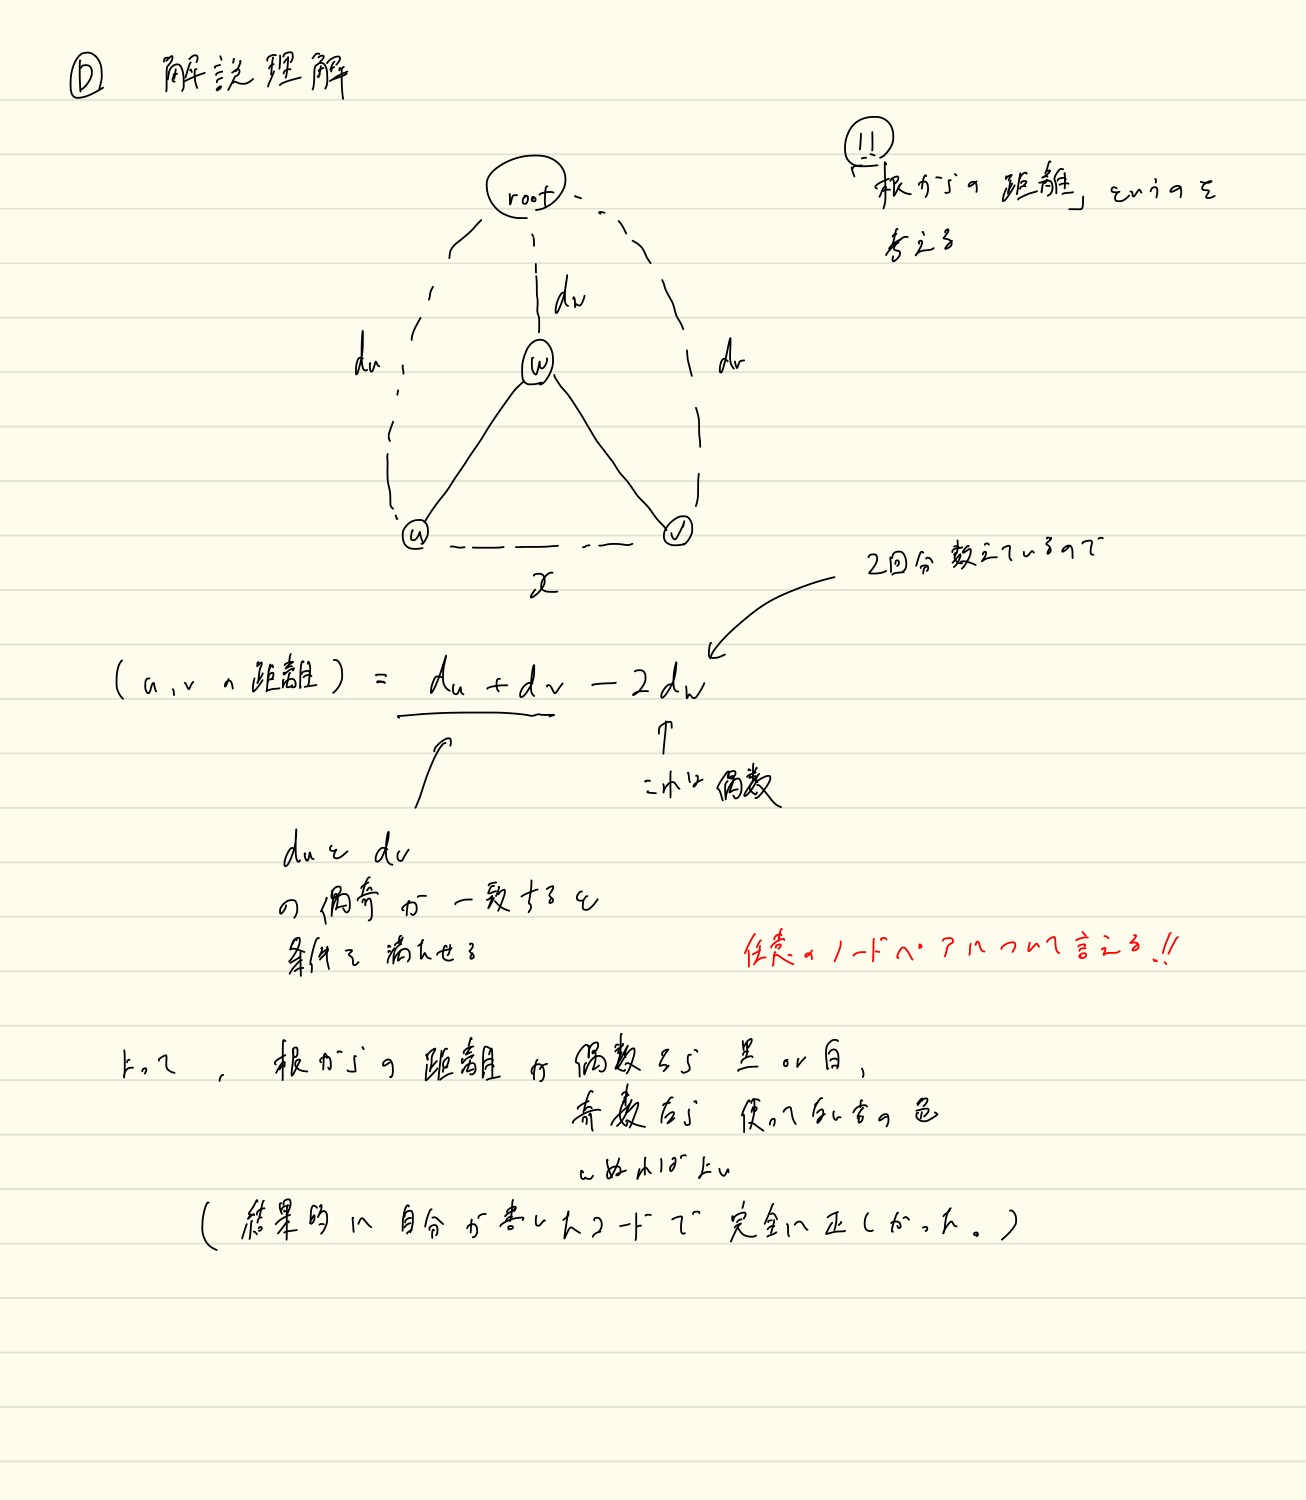 Ⓓ 解説理解
!!
「根からの距離」というのを
考える
root
dw
du
dv
w
u
v
x
2回分数えているので
(u,vの距離) = du + dv − 2dw
これは偶数
duとdv
の偶奇が一致すると
条件を満たせる
任意のノードペアについて言える!!
よって、根からの距離が偶数なら黒or白,
奇数なら使ってない方の色
でぬればよい
(結果的に自分が書いたコードで完全に正しかった。)